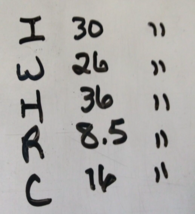 I 30 "
W 26 "
I 36 "
R 8.5 "
C 16 "